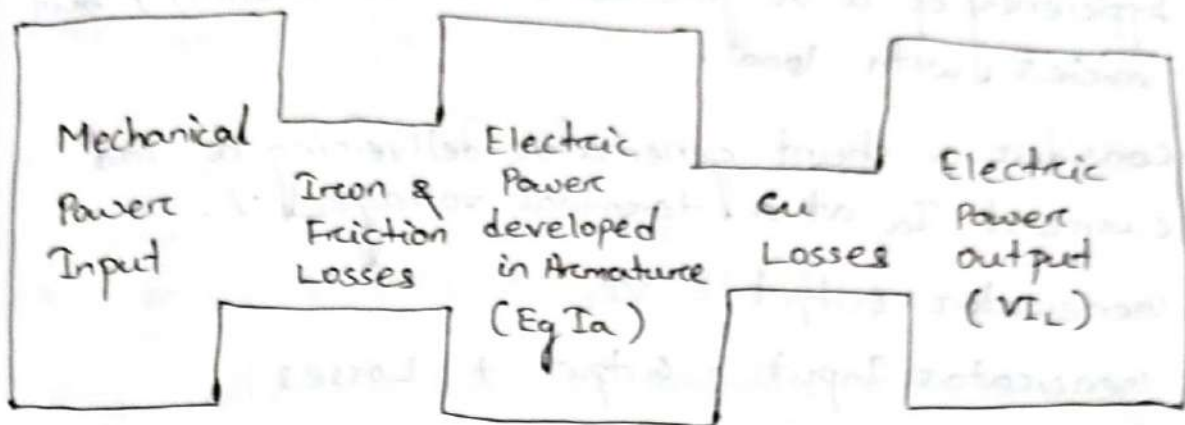 Mechanical
Power
Input
Iron &
Friction
Losses
Electric
Power
developed
in Armature
(Eg Ia)
Cu
Losses
Electric
Power
output
(VI_L)